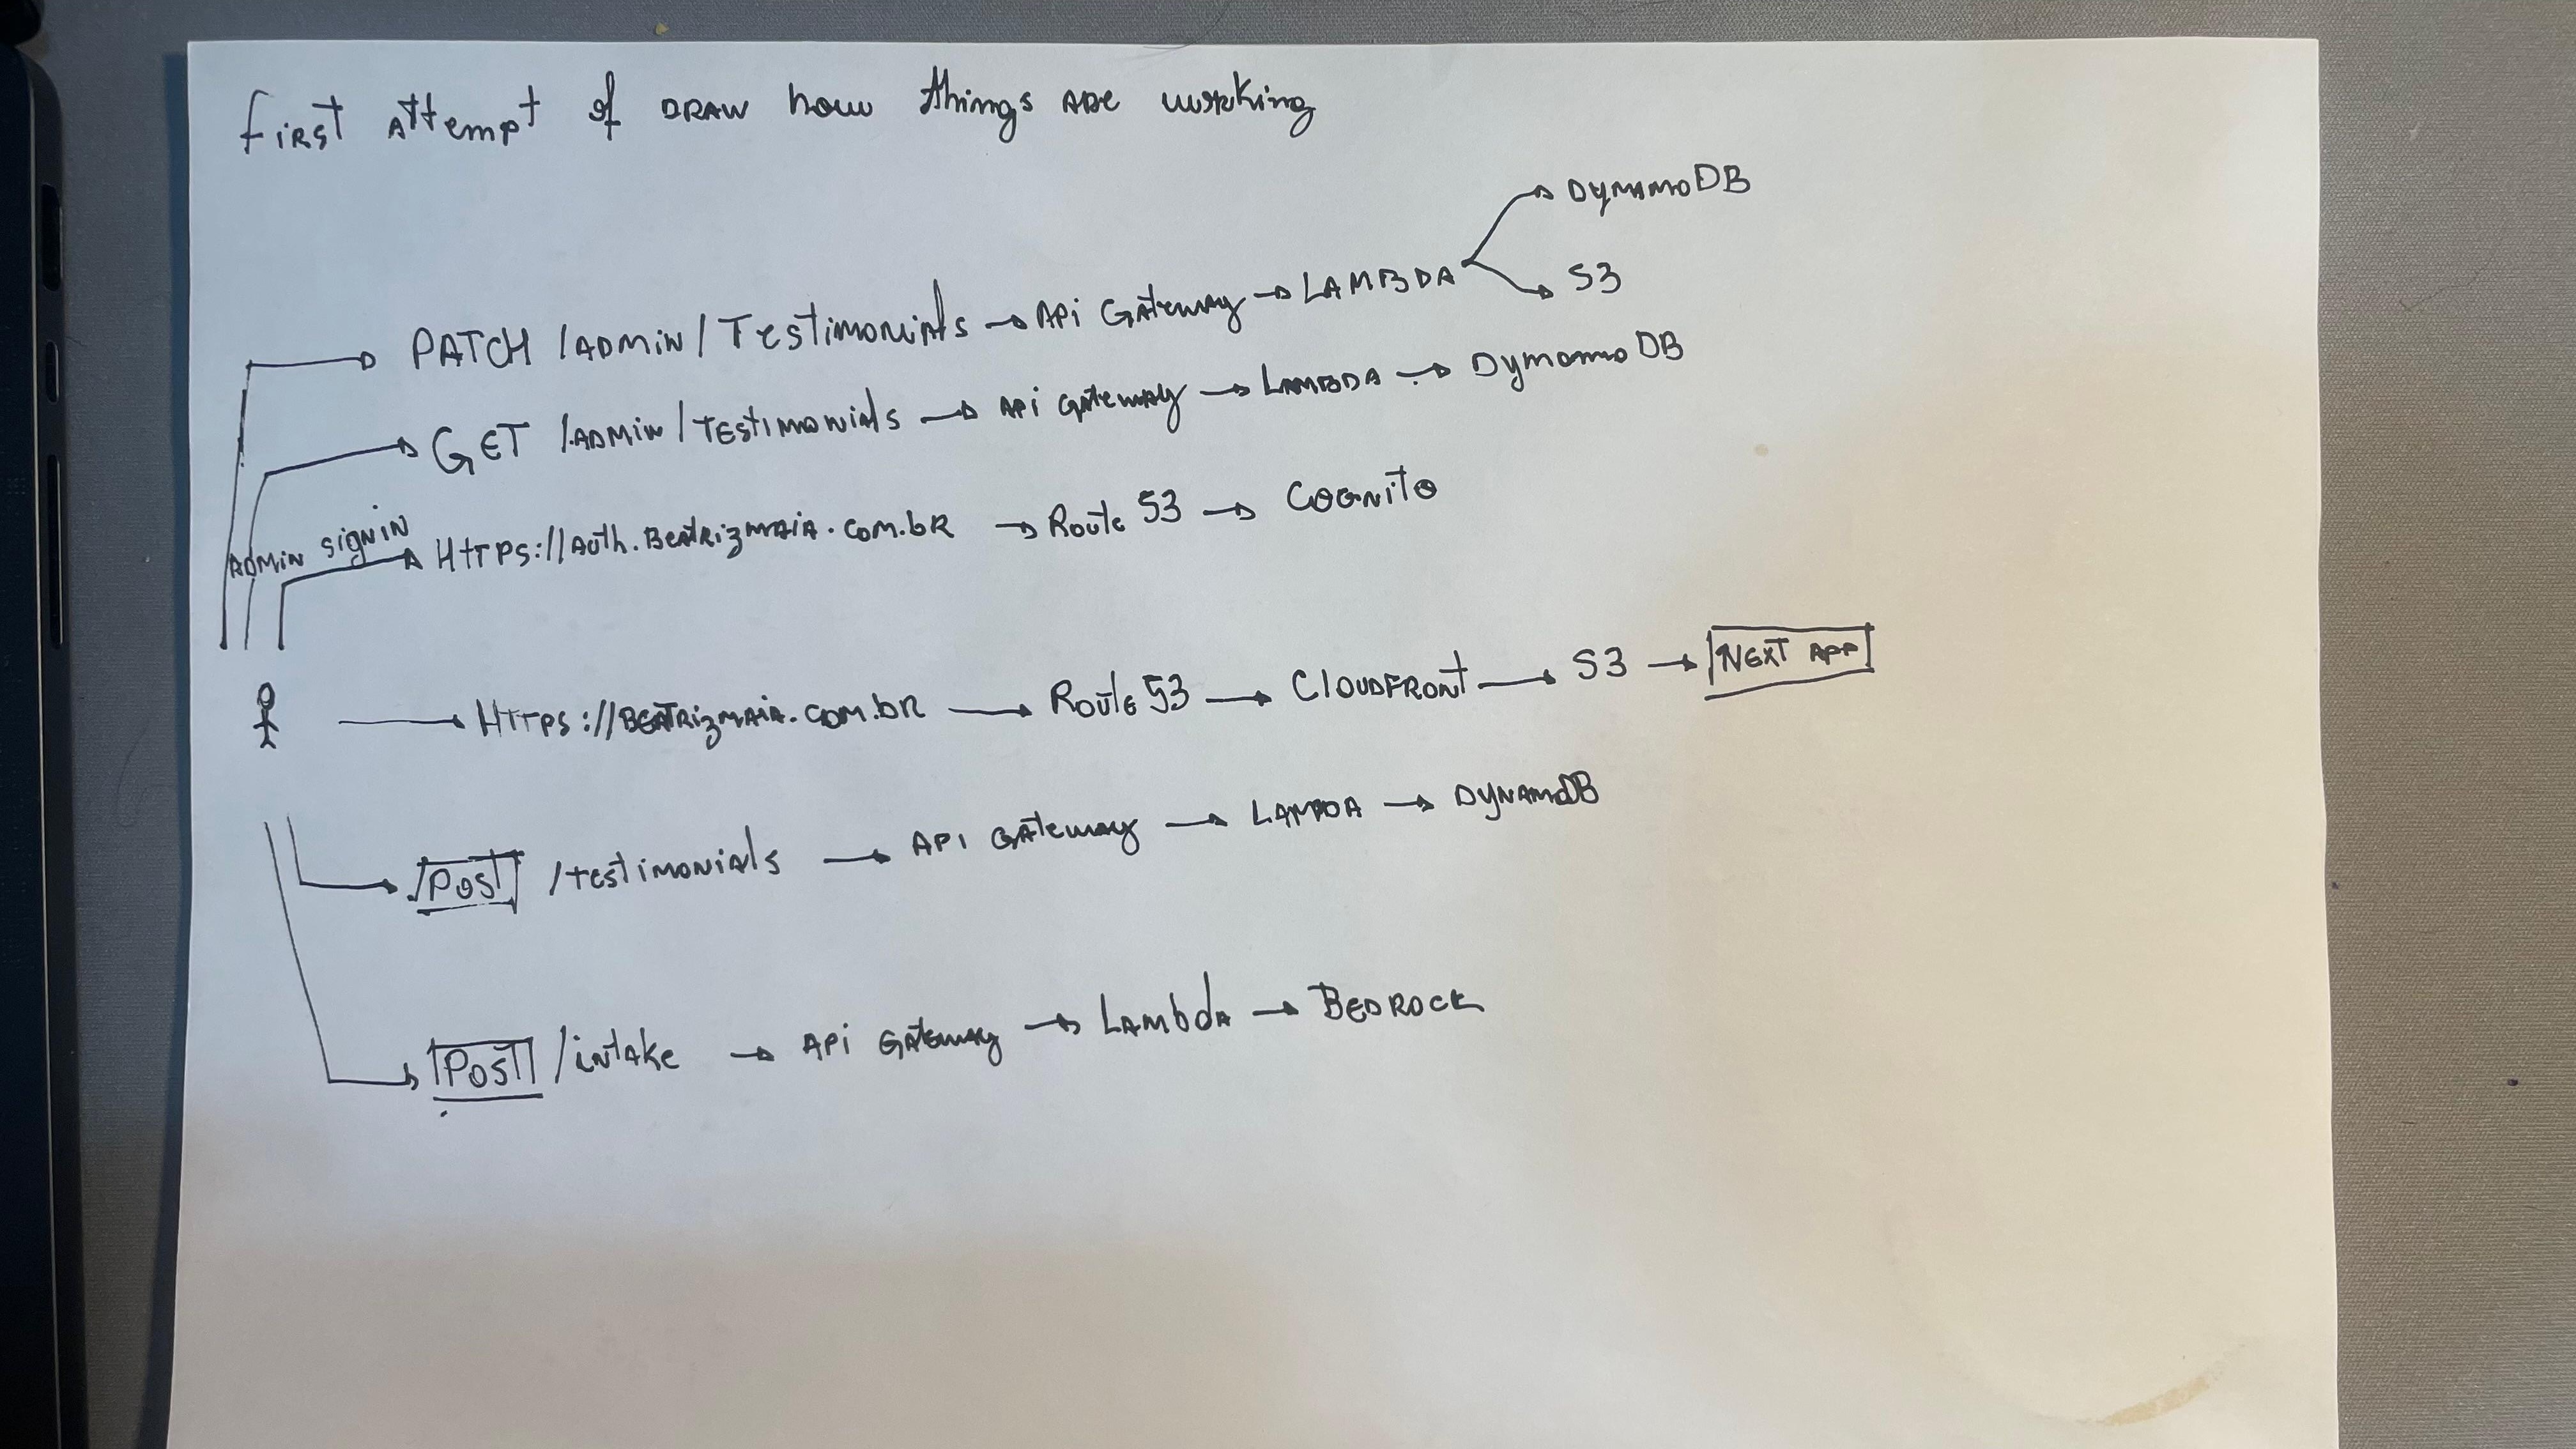 First attempt of DRAW how things are working
DynamoDB
PATCH /ADMIN/Testimonials → Api Gateway → LAMBDA
S3
GET /ADMIN/Testimonials → Api gateway → LAMBDA → DynamoDB
ADMIN signin
Https://Auth.Beatrizmaia.com.br → Route 53 → Cognito
Https://Beatrizmaia.com.br → Route 53 → CloudFront → S3 → NEXT APP
POST /testimonials → API Gateway → LAMBDA → DynamoDB
POST /intake → Api Gateway → Lambda → BEDROCK